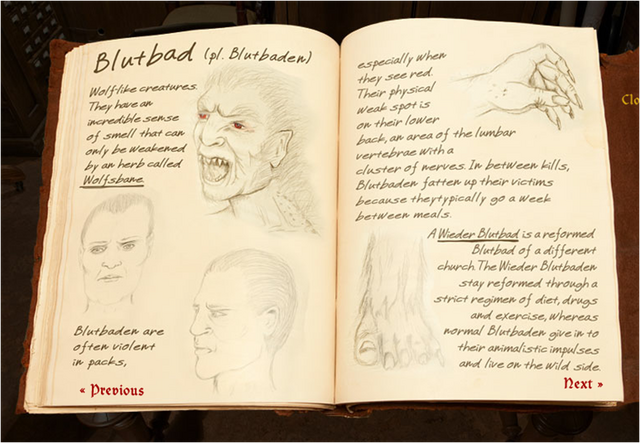 Blutbad (pl. Blutbaden)
Wolflike creatures.
They have an
incredible sense
of smell that can
only be weakened
by an herb called
Wolfsbane.
Blutbaden are
often violent
in packs,
« Previous
especially when
they see red.
Their physical
weak spot is
on their lower
back, an area of the lumbar
vertebrae with a
cluster of nerves. In between kills,
Blutbaden fatten up their victims
because theytypically go a week
between meals.
A Wieder Blutbad is a reformed
Blutbad of a different
church. The Wieder Blutbaden
stay reformed through a
strict regimen of diet, drugs
and exercise, whereas
normal Blutbaden give in to
their animalistic impulses
and live on the wild side.
Next »
Clo